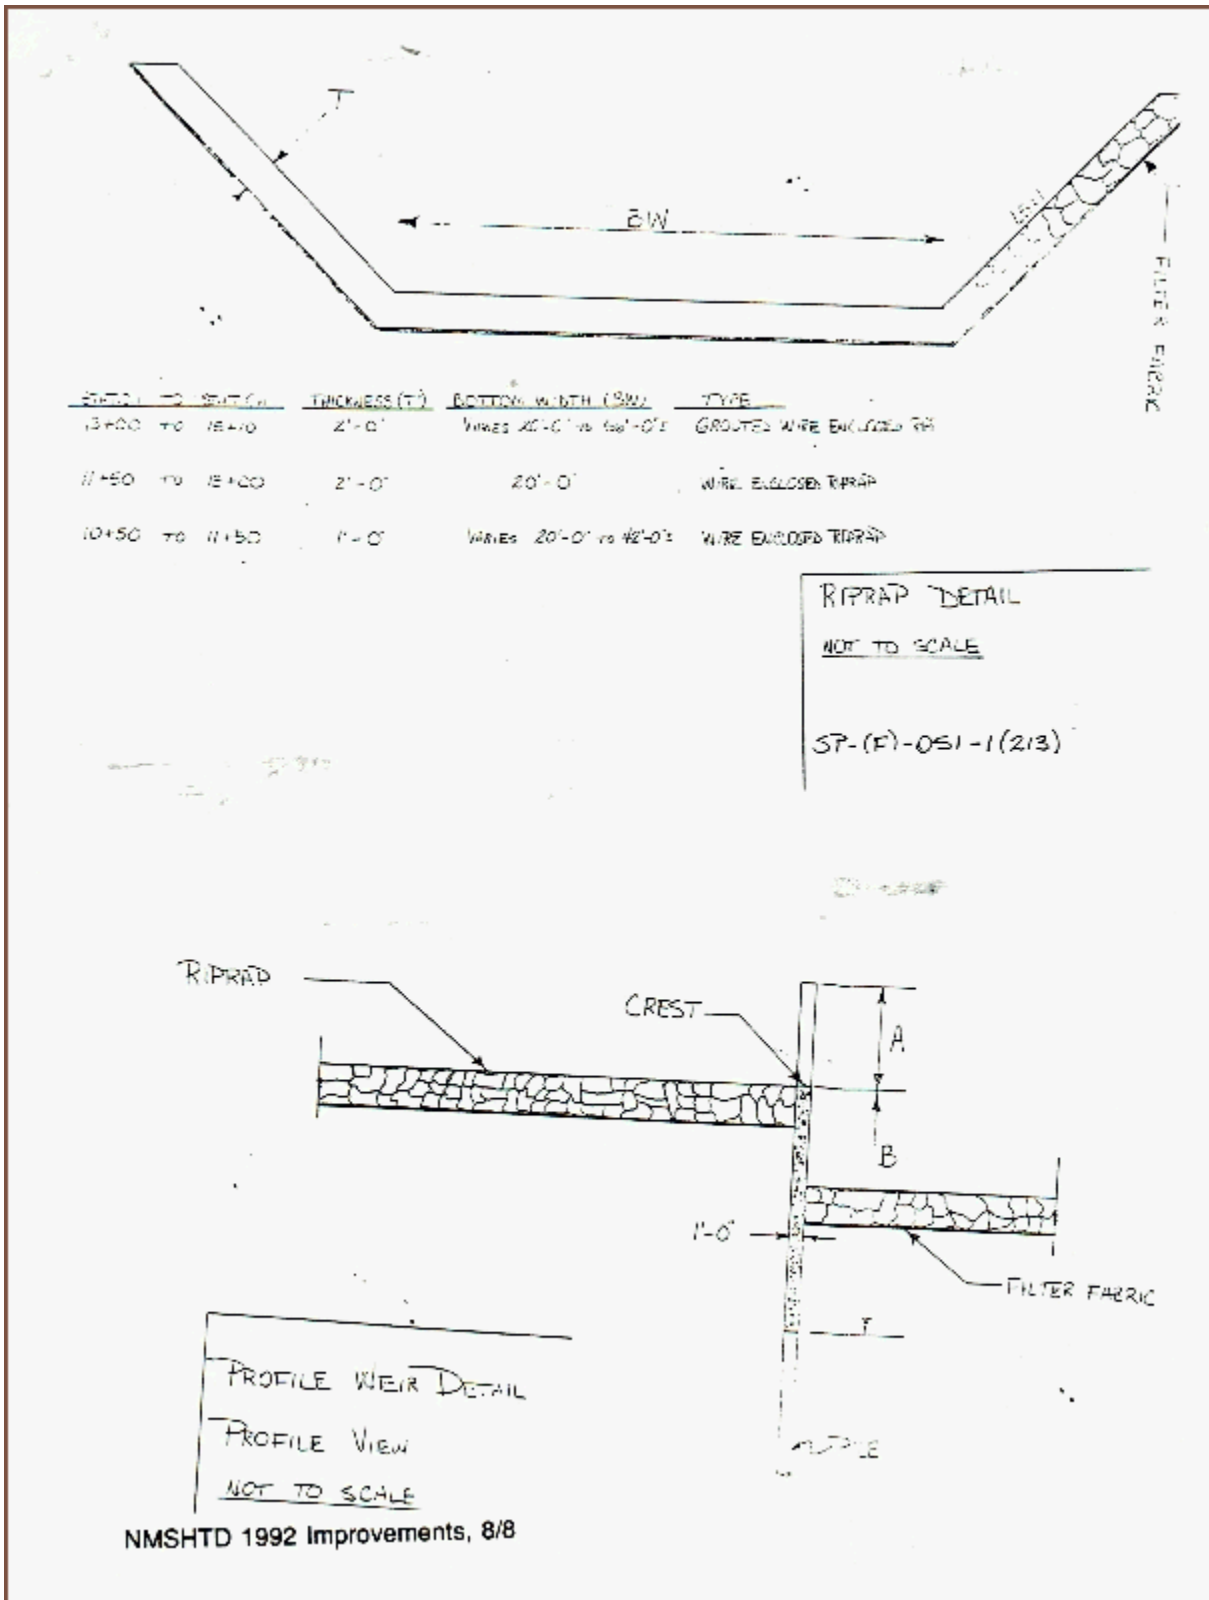 T
BW
FILTER FABRIC
STATION TO STATION THICKNESS (T) BOTTOM WIDTH (BW) TYPE
13+00 TO 2'-0" VARIES GROUTED WIRE ENCLOSED
11+50 TO 2'-0" 20'-0" WIRE ENCLOSED RIPRAP
10+50 TO 11+50 1'-0" VARIES 20'-0" TO 42'-0"± WIRE ENCLOSED RIPRAP
RIPRAP DETAIL
NOT TO SCALE
SP-(F)-051-1(213)
RIPRAP
CREST
A
B
1'-0"
FILTER FABRIC
PROFILE WEIR DETAIL
PROFILE VIEW
NOT TO SCALE
NMSHTD 1992 Improvements, 8/8